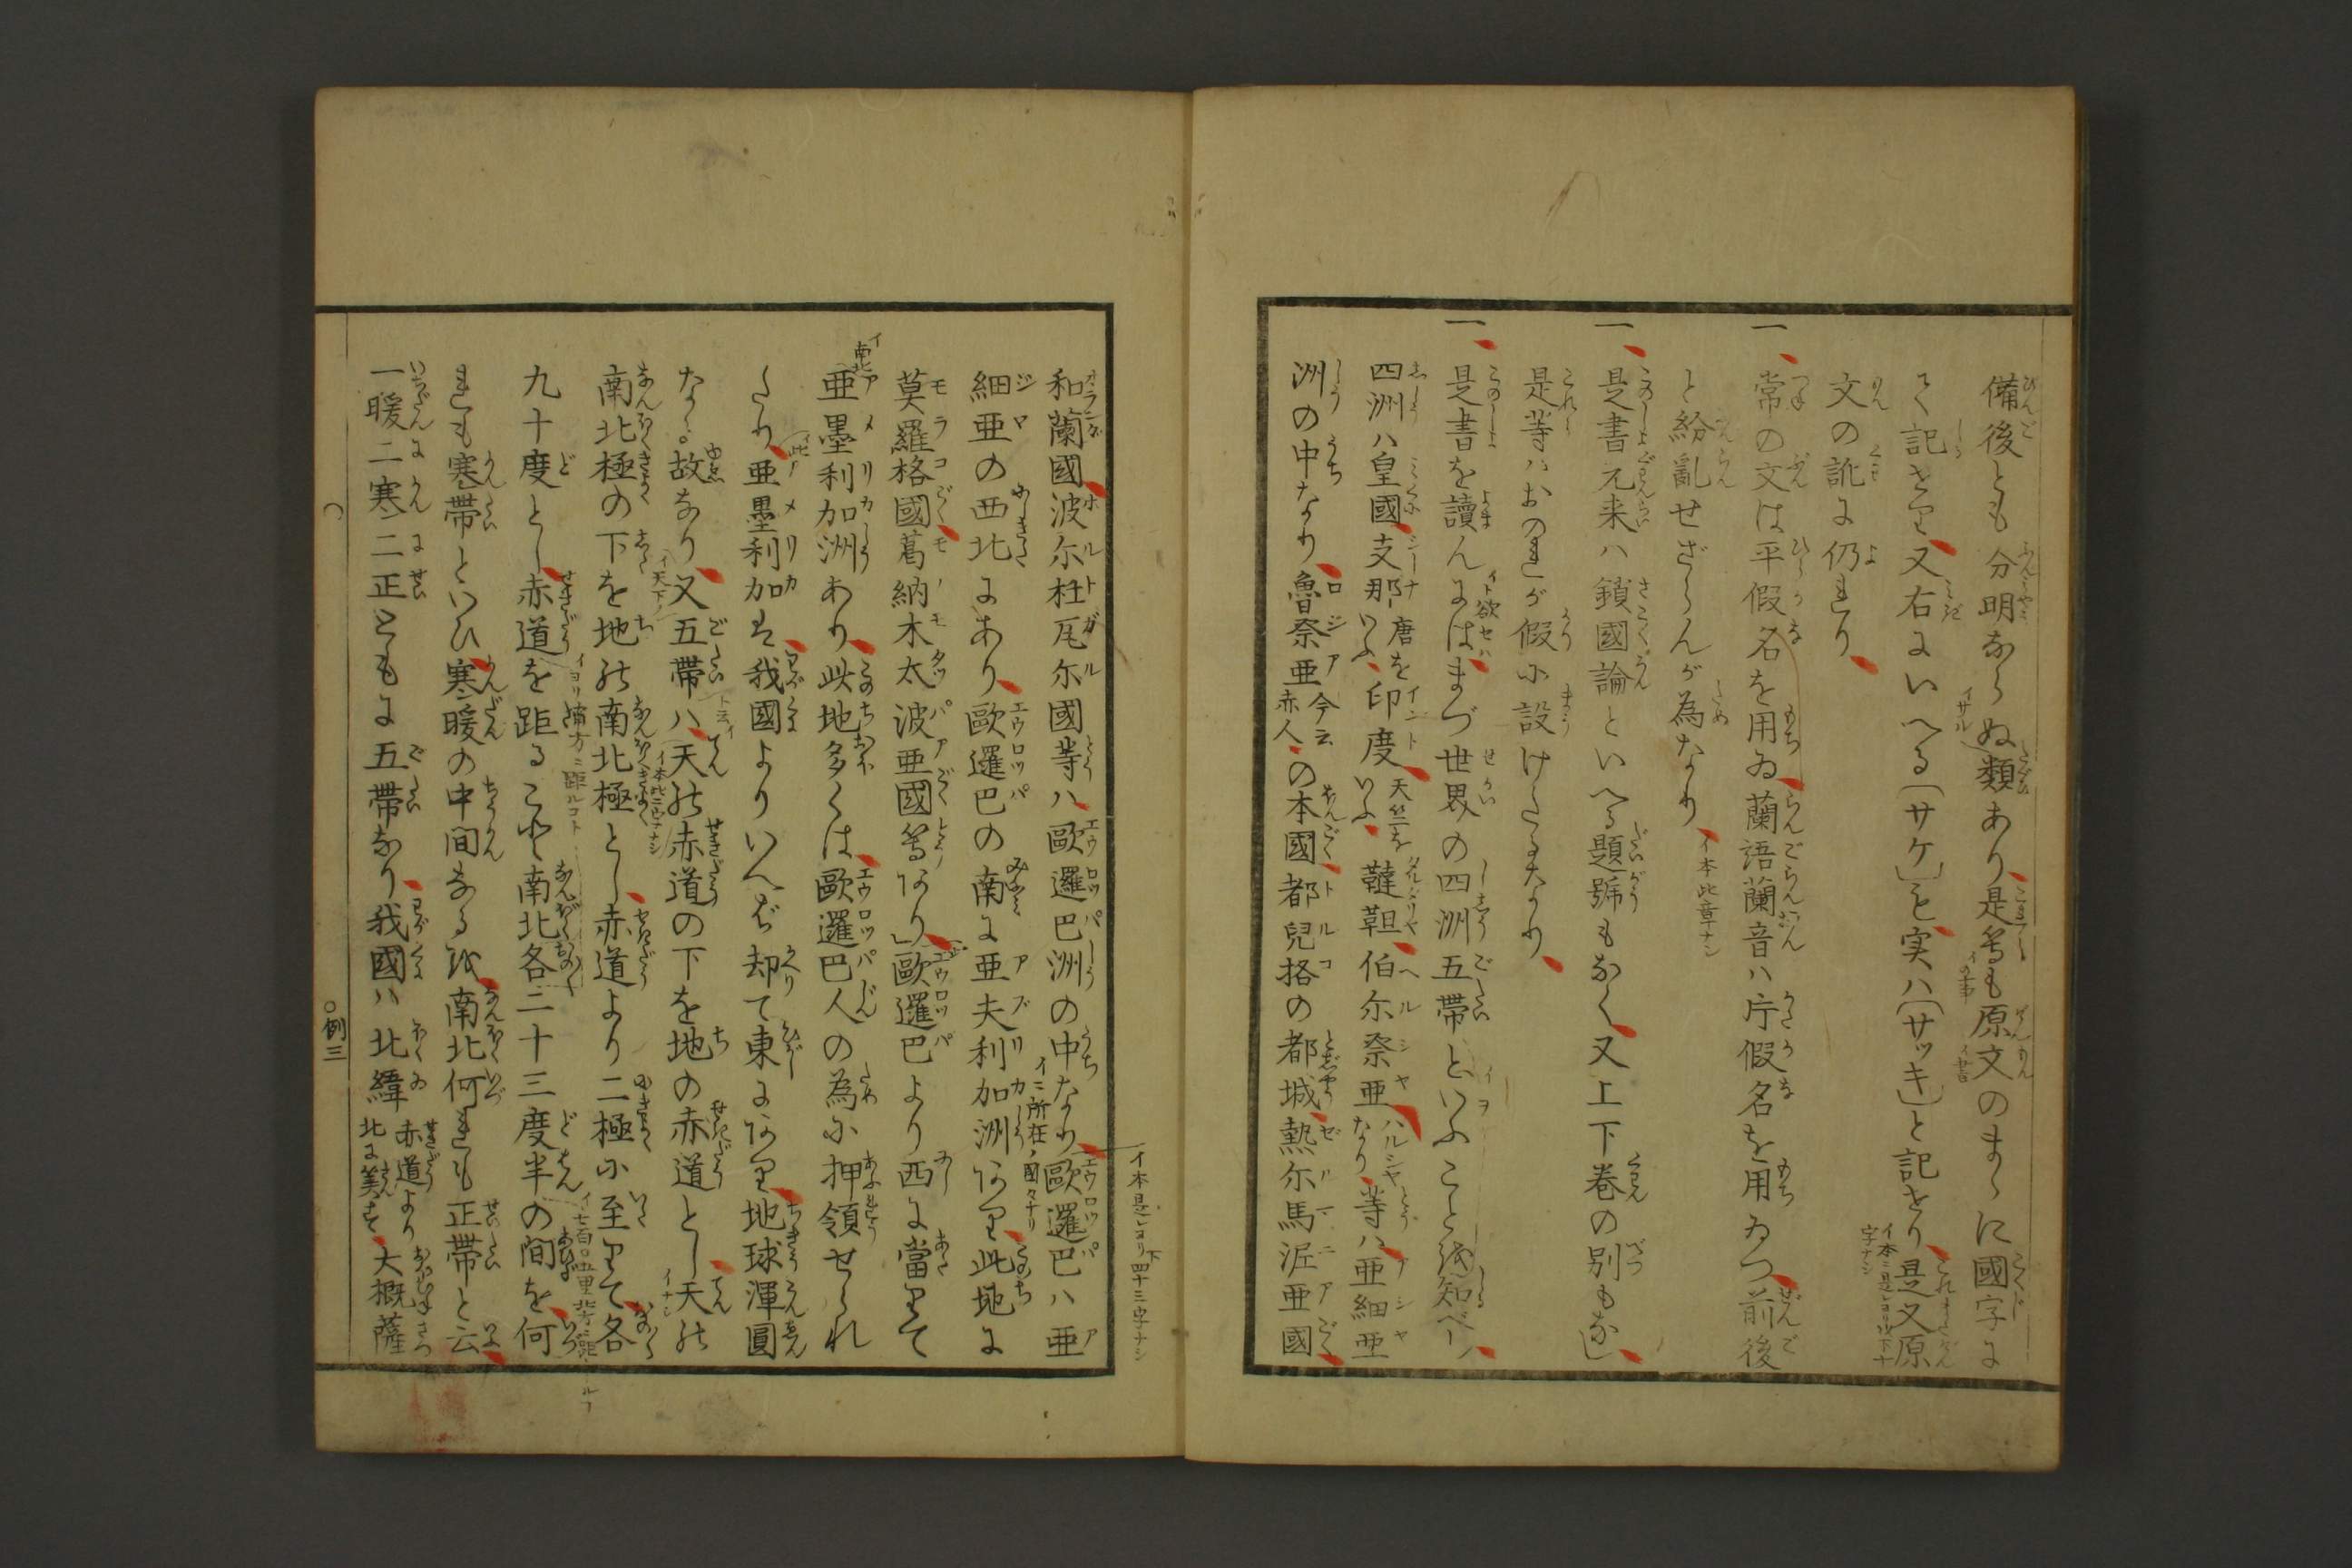 備後とも分明ならぬ類あり是等も原文のまゝに國字に
て記せり又右にいへる[サケ]を実ハ[サッキ]と記せり是又原
文の訛に仍れり
一常の文は平假名を用ゐ蘭語蘭音ハ片假名を用ゐつ前後
と紛亂せざらんが為なり
イ本此章ナシ
一是書元来ハ鎖國論といへる題號もなく又上下巻の別もなし
是等ハおのれが假に設けたるなり
一是書を讀んにはまづ世界の四洲五帶といふことを知べし
四洲ハ皇國支那唐をいふ印度天竺をいふ韃靼伯尓祭亜なり等ハ亜細亜
洲の中なり魯祭亜今云赤人の本國都兒格の都城熱尓馬泥亜國
イ本是ヨリ下四十三字ナシ
和蘭國波尓杜瓦尓國等ハ歐邏巴洲の中なり歐邏巴ハ亜
細亜の西北にあり歐邏巴の南に亜夫利加洲あり此地に
莫羅格國莫納木太波亜國等あり歐邏巴より西に當りて
亜墨利加洲あり此地多くは歐邏巴人の為に押領せられ
たり亜墨利加は我國よりいへば却て東にあり地球渾圓
なる故なり又五帶ハ天の赤道の下を地の赤道とし天の
南北極の下を地の南北極とし赤道より二極に至りて各
九十度とし赤道を距ること南北各二十三度半の間を何
れも寒帶といひ寒暖の中間なるを南北何れも正帶と云
一暖二寒二正ともに五帶なり我國ハ北緯赤道より北に算す大概薩
例三